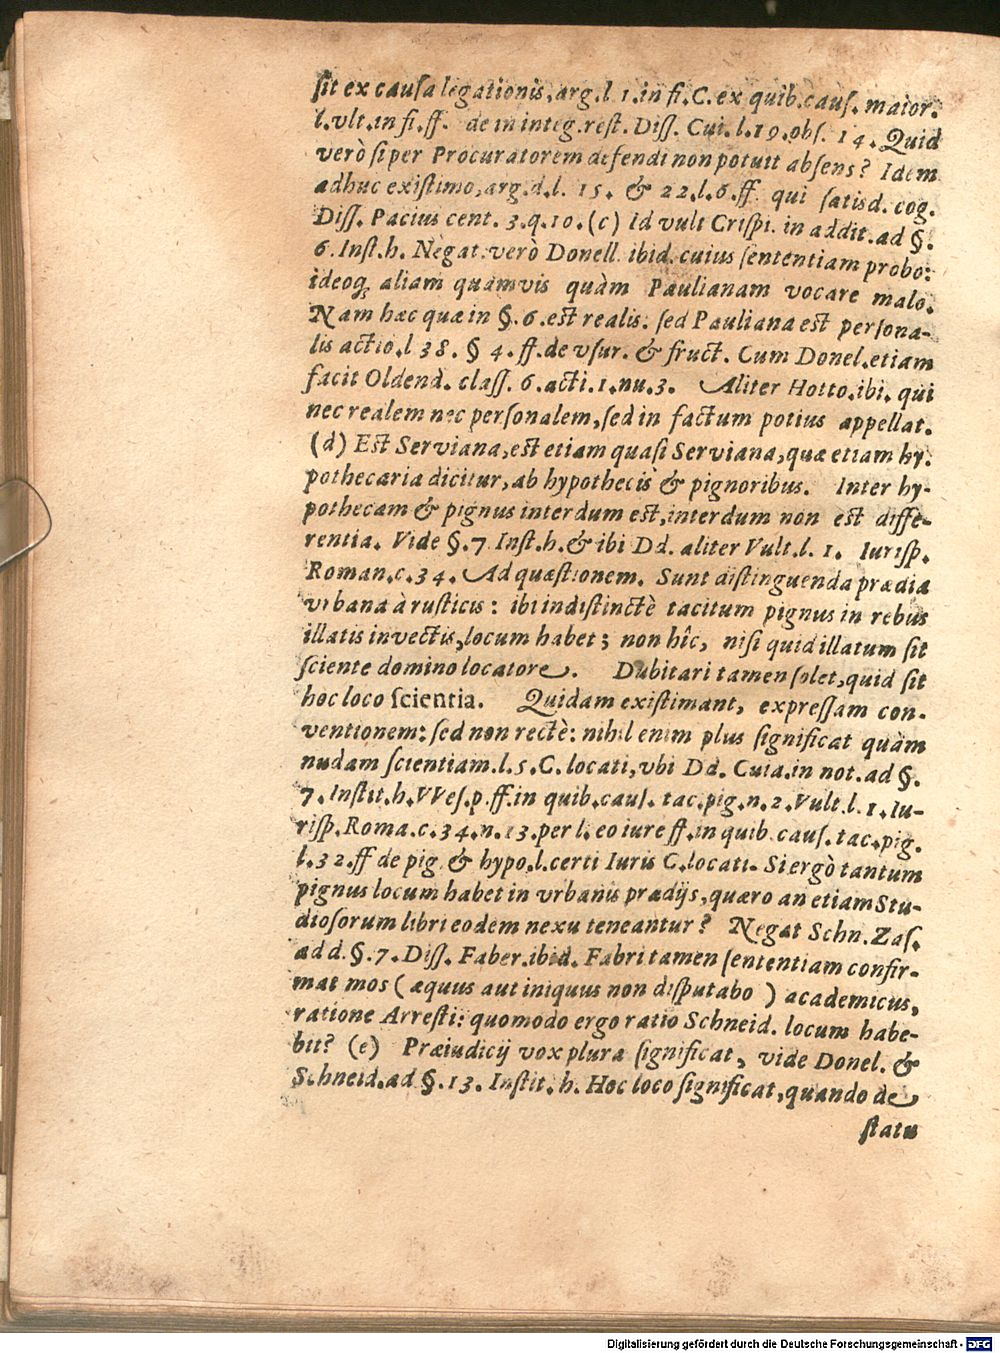 ſit ex cauſa legationis, arg. l. 1. in fi. C. ex quib. cauſ. maior.
l. vlt. in fi. ff. de in integ. reſt. Diſſ. Cui. l. 19. obſ. 14. Quid
verò ſi per Procuratorem defendi non potuit abſens? Idem
adhuc exiſtimo, arg. d. l. 15. & 22. l. 6. ff qui ſatisd. cog.
Diſſ. Pacius cent. 3. q. 10. (c) Id vult Criſpi. in addit. ad §.
6. Inſt. h. Negat. verò Donell. ibid. cuius ſententiam probo:
ideoq; aliam quamvis quàm Paulianam vocare malo.
Nam hæc quæ in §. 6. eſt realis: ſed Pauliana eſt perſona-
lis actio, l 38. § 4. ff. de vſur. & fruct. Cum Donel. etiam
facit Oldend. claſſ. 6. acti. 1. nu. 3. Aliter Hotto. ibi. qui
nec realem nec perſonalem, ſed in factum potius appellat.
(d) Eſt Serviana, eſt etiam quaſi Serviana, quæ etiam hy-
pothecaria dicitur, ab hypothecis & pignoribus. Inter hy-
pothecam & pignus interdum eſt, interdum non eſt diffe-
rentia. Vide §. 7 Inſt. h. & ibi Dd. aliter Vult. l. 1. Iuriſp.
Roman. c. 34. Ad quæſtionem. Sunt diſtinguenda prædia
vrbana à ruſticis: ibi indiſtinctè tacitum pignus in rebus
illatis invectis, locum habet; non hîc, niſi quid illatum ſit
ſciente domino locatore. Dubitari tamen ſolet, quid ſit
hoc loco ſcientia. Quidam exiſtimant, expreſſam con-
ventionem: ſed non rectè: nihil enim plus ſignificat quàm
nudam ſcientiam. l. 5. C. locati, vbi Dd. Cuia. in not. ad §.
7. Inſtit. h. VVeſ. p. ff. in quib. cauſ. tac. pig. n. 2. Vult. l. 1. Iu-
riſp. Roma. c. 34. n. 13. per l. eo iure ff. in quib. cauſ. tac. pig.
l. 32. ff de pig. & hypo. l. certi Iuris C. locati. Si ergò tantum
pignus locum habet in vrbanis prædijs, quæro an etiam Stu-
dioſorum libri eodem nexu teneantur? Negat Schn. Zaſ.
ad d. §. 7. Diſſ. Faber. ibid. Fabri tamen ſententiam confir-
mat mos (æquus aut iniquus non diſputabo) academicus,
ratione Arreſti: quomodo ergo ratio Schneid. locum habe-
bit? (e) Præiudicij vox plura ſignificat, vide Donel. &
Schneid. ad §. 13. Inſtit. h. Hoc loco ſignificat, quando de
ſtatu
Digitalisierung gefördert durch die Deutsche Forschungsgemeinschaft - DFG